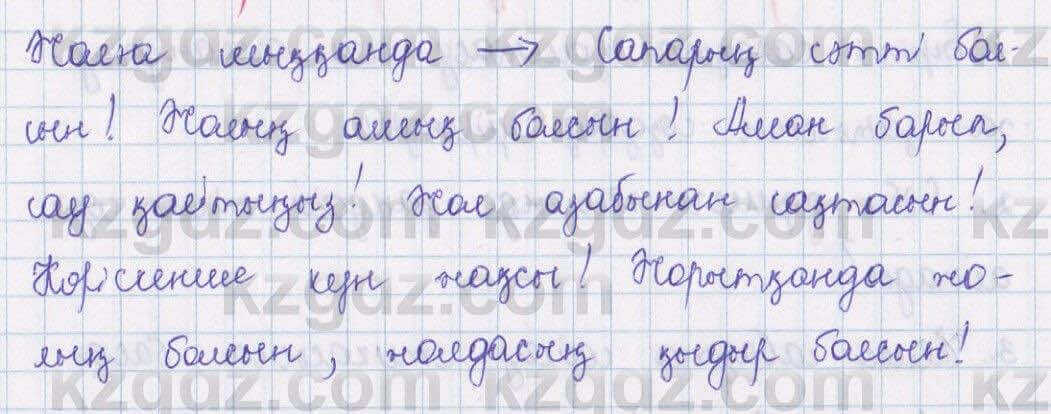 Жолға шыққанда → Сапарың сәтті бол-
сын! Жолың ашық болсын! Аман барып,
сау қайтыңыз! Жол азабынан сақтасын!
Көріскенше күн жақсы! Жорытқанда жо-
лың болсын, жолдасың қыдыр болсын!